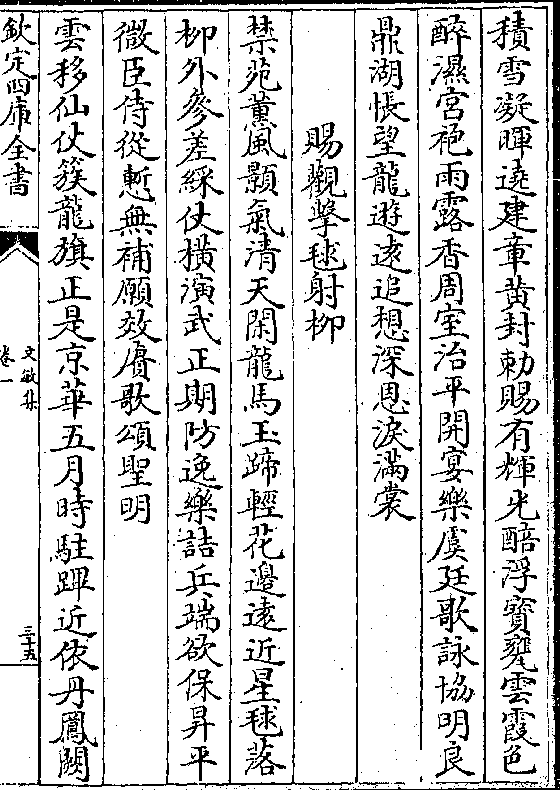 積雪凝暉遶建章黄封勅賜有輝光醅浮寳甕雲霞色
醉濕宫袍雨露香周室治平開宴樂虞廷歌詠協明良
鼎湖悵望龍遊逺追想深恩淚滿裳
賜觀擊毬射柳
禁苑薫風顥氣清天閑龍馬玉蹄輕花邊逺近星毬落
柳外參差綵仗橫演武正期防逸樂詰兵端欲保昇平
微臣侍從慙無補願效賡歌頌聖明
雲移仙仗簇龍旗正是京華五月時駐蹕近依丹鳳闕
欽定四庫全書
文敏集
卷一
三十五